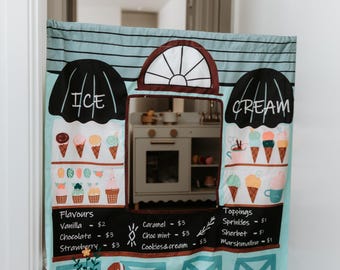 ICE CREAM
Flavours
Vanilla - $2
Chocolate - $3
Strawberry - $3
Caramel - $3
Choc mint - $3
Cookies&cream - $3
Toppings
Sprinkles - $1
Sherbet - $1
Marshmallow - $1